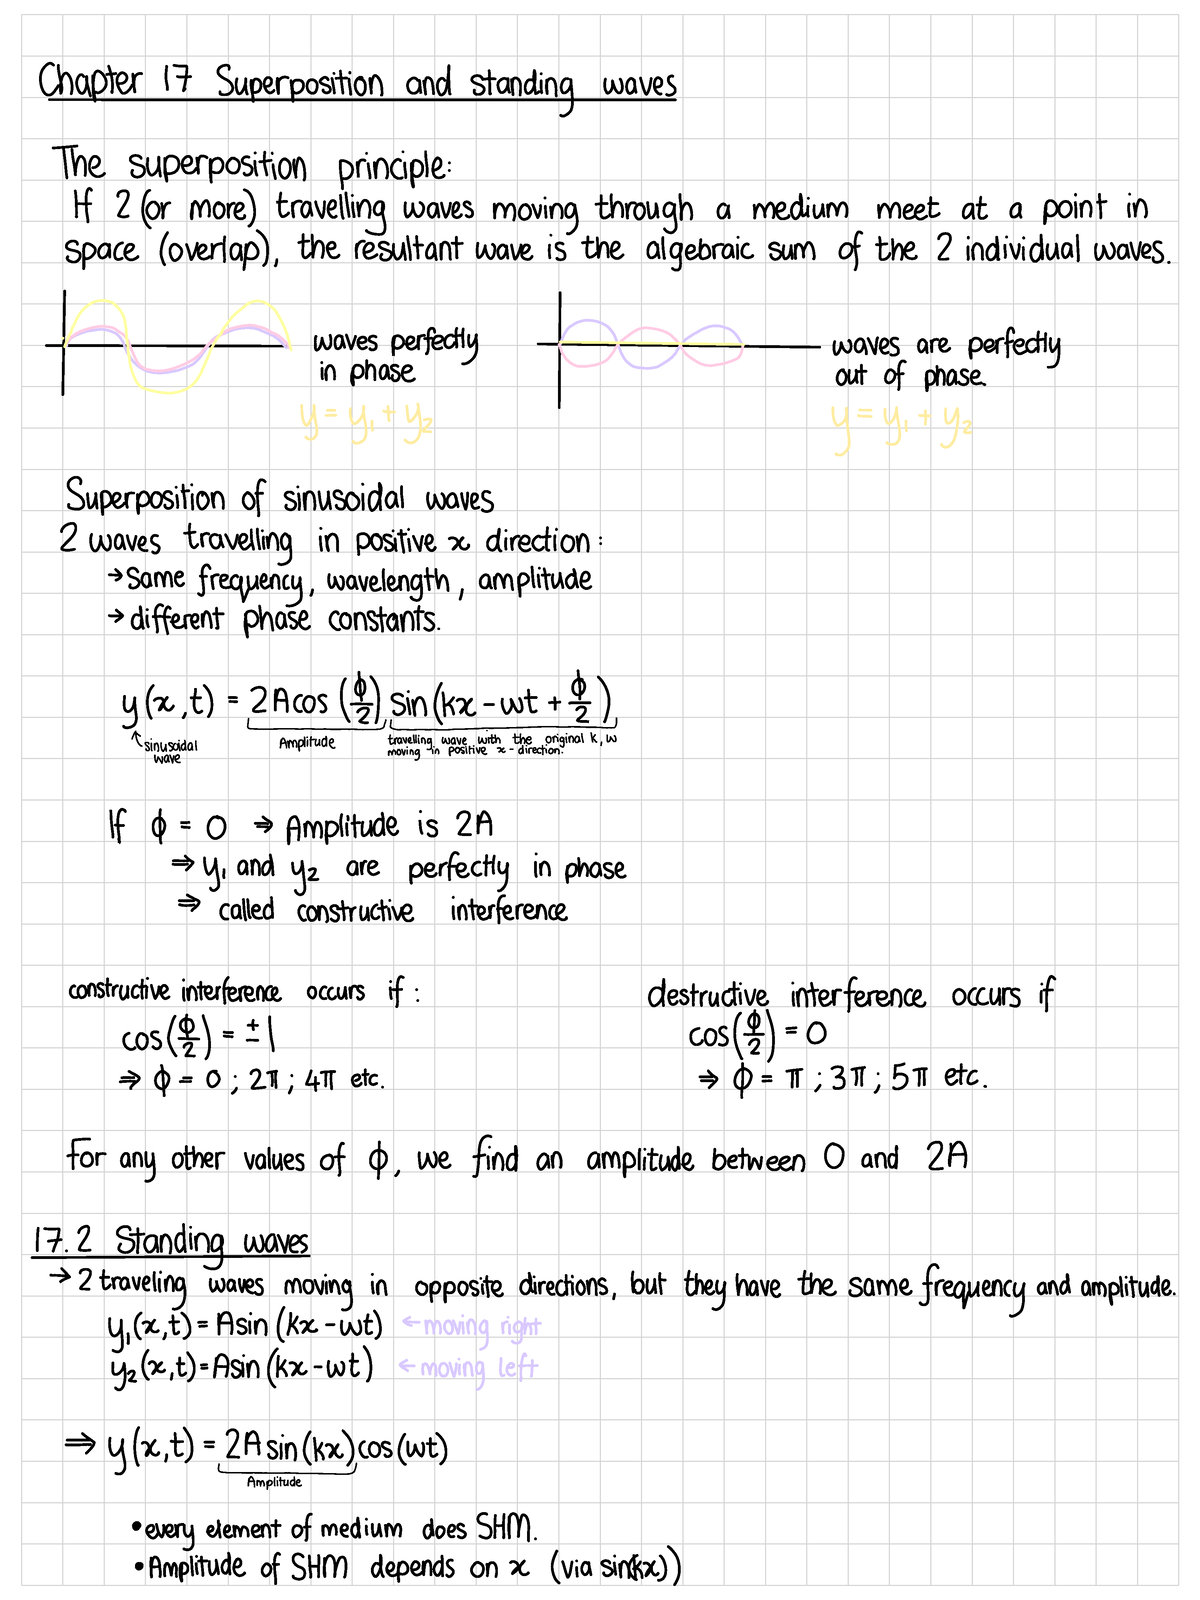 Chapter 17 Superposition and standing waves
The superposition principle:
If 2 (or more) travelling waves moving through a medium meet at a point in
space (overlap), the resultant wave is the algebraic sum of the 2 individual waves.
waves perfectly
in phase
y = y₁ + y₂
waves are perfectly
out of phase.
y = y₁ + y₂
Superposition of sinusoidal waves
2 waves travelling in positive x direction:
→ Same frequency, wavelength, amplitude
→ different phase constants.
y(x,t) = 2Acos(ϕ/2) sin(kx - ωt + ϕ/2)
sinusoidal
wave
Amplitude
travelling wave with the original k, ω
moving in positive x-direction.
If ϕ = 0 ⇒ Amplitude is 2A
⇒ y₁ and y₂ are perfectly in phase
⇒ called constructive interference
constructive interference occurs if:
cos(ϕ/2) = ±1
⇒ ϕ = 0 ; 2π ; 4π etc.
destructive interference occurs if
cos(ϕ/2) = 0
⇒ ϕ = π ; 3π ; 5π etc.
For any other values of ϕ, we find an amplitude between 0 and 2A
17.2 Standing waves
→ 2 traveling waves moving in opposite directions, but they have the same frequency and amplitude.
y₁(x,t) = Asin(kx - ωt) ← moving right
y₂(x,t) = Asin(kx - ωt) ← moving left
⇒ y(x,t) = 2Asin(kx)cos(ωt)
Amplitude
• every element of medium does SHM.
• Amplitude of SHM depends on x (via sin(kx))